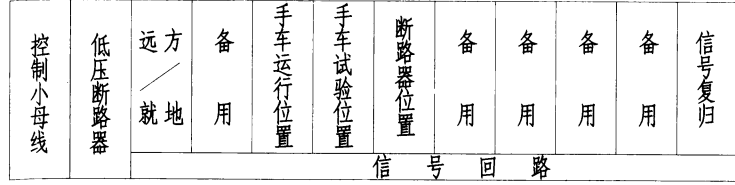 控制小母线
低压断路器
远方/就地
备用
手车运行位置
手车试验位置
断路器位置
备用
备用
备用
备用
信号复归
信号回路